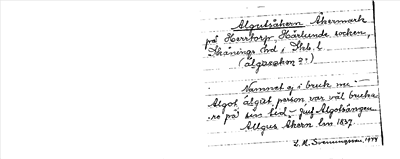 Algutsåkern Åkermark
på Herrtorp, Härlunda socken,
Skånings hd, Skb. l.
(algosakən ? .)
Namnet ej i bruk nu.
Algot, älgat, person var väl brucka-
re på sin tid. - Jmf Algotsängen
Allgus Åkern lm 1837.
L. M. Svenungsson, 1944